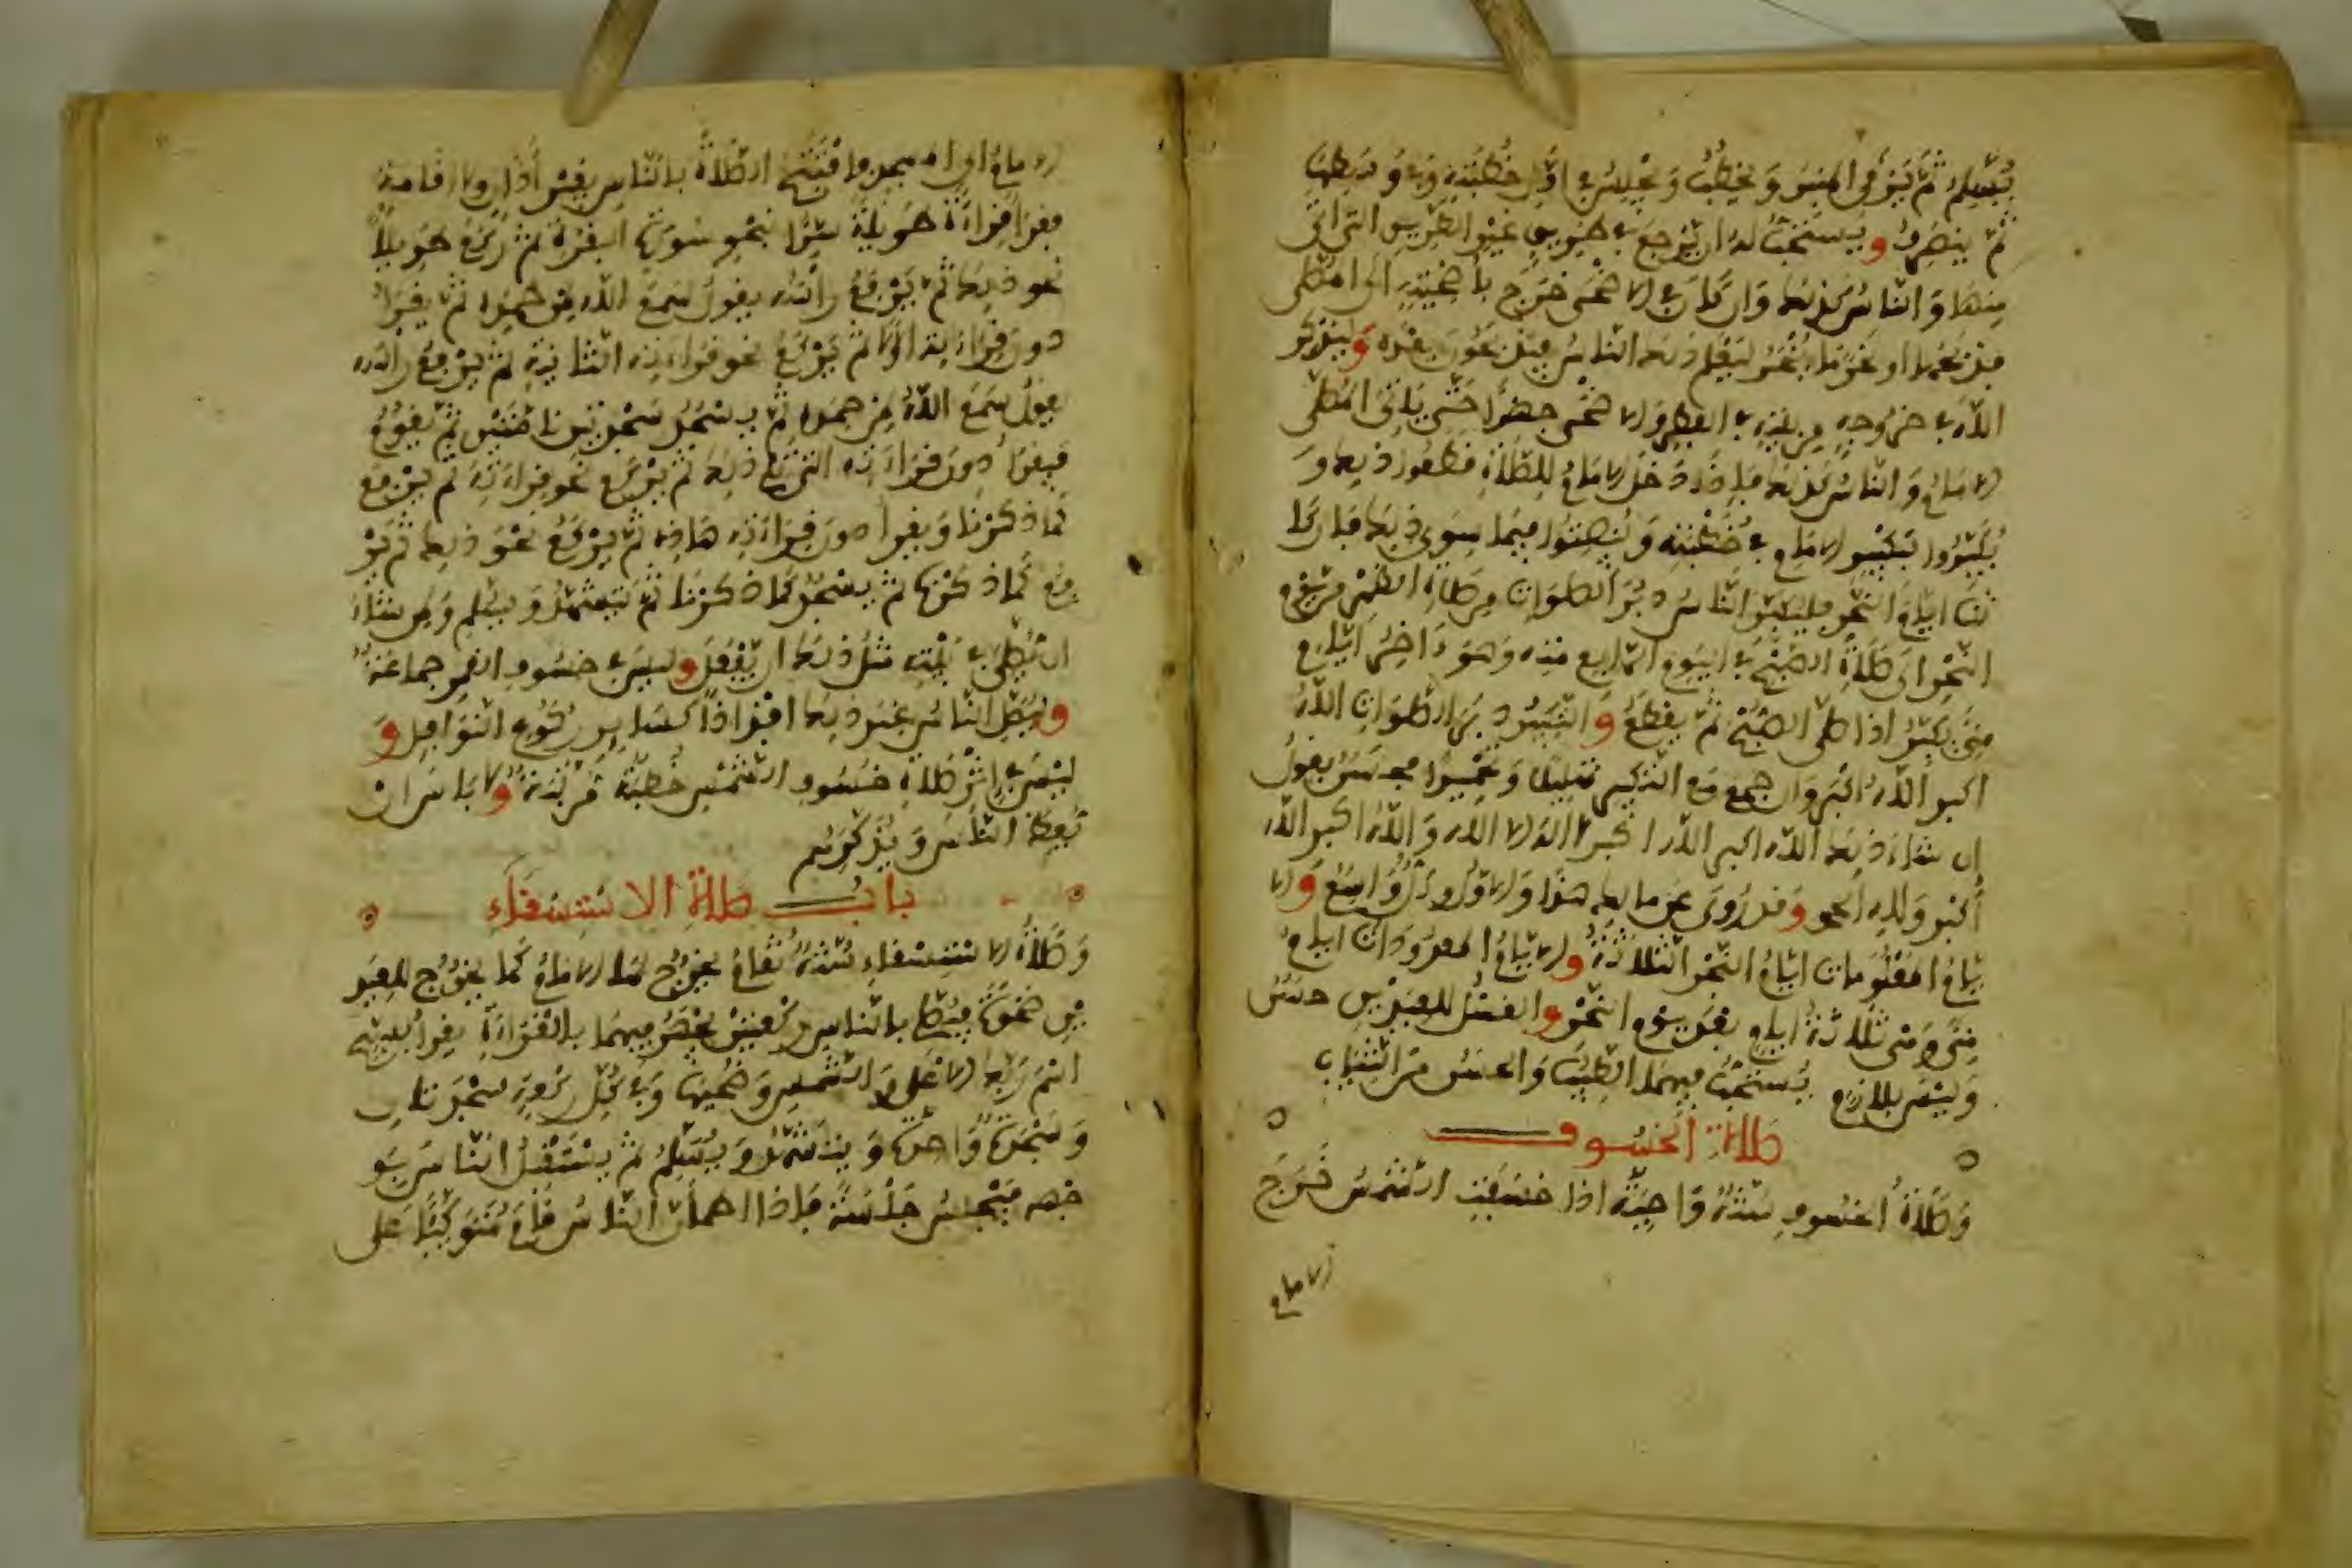 يُسَلِّم ثم يَرْقَى المنبر ويخطُب ويجلس في أول خُطبته وفي وسطها
ثم ينصرف ويستحب له ان يرجع في طريق غير الطريق التي اتى
منها والناس كذلك وان كان في الاضحى خرج بأضحيته الى المصلى
فذبحها او نحرها ليعلم ذلك الناس فيذبحون بعده وليذكر
الله في خروجه من بيته في الفطر والاضحى جهرا حتى ياتي المصلى
الامام والناس كذلك فاذا دخل الامام للصلاة قطعوا ذلك و
يُكبّروا بتكبير الامام في خطبته وينصتوا فيما سوى ذلك فان كا
نت ايام النحر فليكبر الناس دبر الصلوات من صلاة الظهر من يوم
النحر الى صلاة الصبح في اليوم الرابع منه وهو ءاخر ايام
منى يكبر اذا صلى الصبح ثم يقطع والتكبير دبر الصلوات الله
اكبر الله اكبر وان جمع مع التكبير تهليلا وتحميدا فحسن يقول
ان شاء ذلك الله اكبر الله اكبر لا اله الا الله والله اكبر الله
أكبر ولله الحمد وقد روي عن مالك هذا والاول والكل واسع والا
يام المعلومات ايام النحر الثلاثة والايام المعدودات ايام
منى وهي ثلاثة ايام بعد يوم النحر والغسل للعيدين حسن
وليس بلازم يُستحب فيهما الطيب والحسن من الثياب
صلاة الخسوف
وصلاة الخسوف سنة واجبة اذا خسفت الشمس خرج
الامام
الامام الى المسجد فافتتح الصلاة بالناس بغير أذان ولا اقامة
فقرأ قراءة طويلة سرا بنحو سورة البقرة ثم ركع طويلا
نحو ذلك ثم يرفع رأسه يقول سمع الله لمن حمده ثم يقرأ
دون قراءته الاولى ثم يركع نحو قراءته الثانية ثم يرفع رأسه
يقول سمع الله لمن حمده ثم يسجد سجدتين تامتين ثم يقوم
فيقرأ دون قراءته التي تلي ذلك ثم يركع نحو قراءته ثم يرفع
كما ذكرنا ويقرأ دون قراءته هاذه ثم يركع نحو ذلك ثم ير
فع كما ذكرنا ثم يسجد كما ذكرنا ثم يتشهد ويسلم ولمن شاء
ان يصلي في بيته مثل ذلك ان يفعل وليس في خسوف القمر جماعة
وليصل الناس عند ذلك افذاذا كساير ركوع النوافل و
ليس في إثر صلاة خسوف الشمس خطبة مرتبة ولا باس ان
يعظ الناس ويذكرهم
باب صلاة الاستسقاء
وصلاة الاستسقاء سنة تقام يخرج لها الامام كما يخرج للعيد
ين ضحوة فيصلي بالناس ركعتين يجهر فيهما بالقراءة يقرأ بسبح
اسم ربك الاعلى والشمس وضحيها وفي كل ركعة سجدتان
وسجدة واحدة ويتشهد ويسلم ثم يستقبل الناس بو
جهه فيجلس جلسة فإذا اطمأن الناس قام متوكئا على